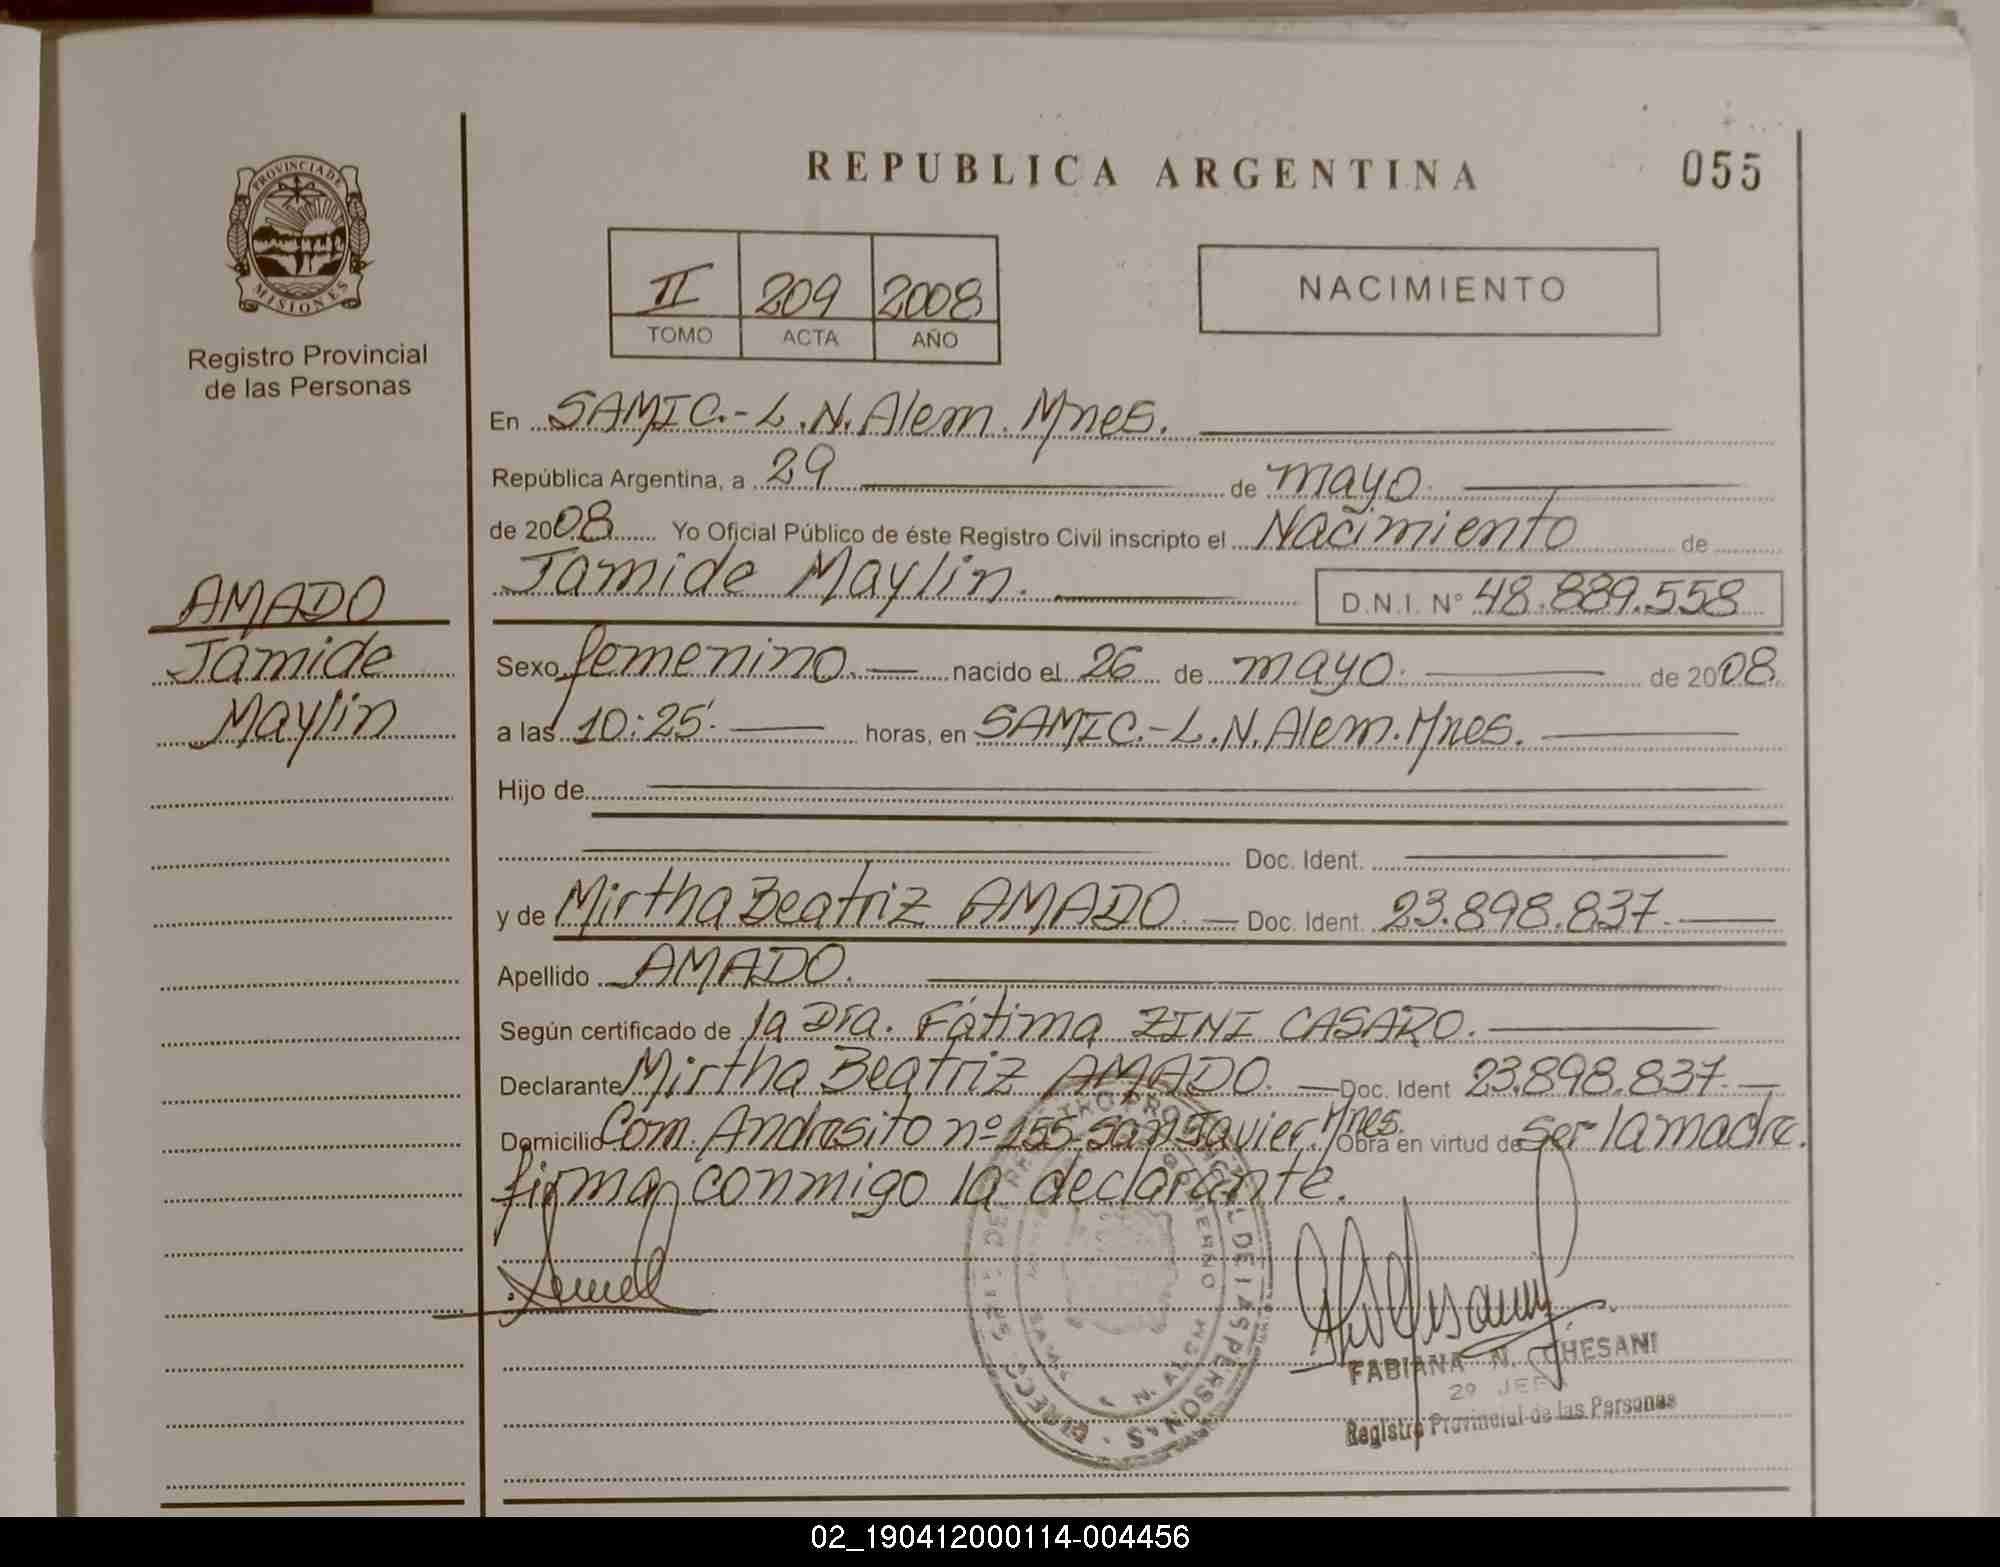 REPUBLICA ARGENTINA
055
PROVINCIA DE
MISIONES
Registro Provincial
de las Personas
II 209 2008
TOMO ACTA AÑO
NACIMIENTO
En SAMIC.-L.N.Alem.Mnes.
República Argentina, a 29 de mayo.
de 2008 Yo Oficial Público de éste Registro Civil inscripto el Nacimiento de
Jamide Maylin. D.N.I. Nº 48.889.558
AMADO
Jamide
Maylin
Sexo femenino. nacido el 26 de mayo. de 2008.
a las 10:25'. horas, en SAMIC.-L.N.Alem.Mnes.
Hijo de
Doc. Ident.
y de Mirtha Beatriz AMADO. Doc. Ident. 23.898.837.
Apellido AMADO.
Según certificado de la Dra. Fátima ZINI CASARO.
Declarante Mirtha Beatriz AMADO. Doc. Ident 23.898.837.
Domicilio Com. Andresito nº 155-San Javier, Mnes. Obra en virtud de ser la madre.
firman conmigo la declarante.
FABIANA N. CHESANI
Registro Provincial de las Personas
02_190412000114-004456